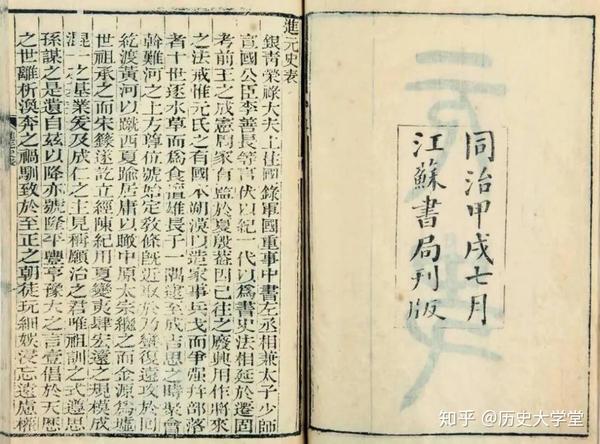 同治甲戌七月
江蘇書局刊版
進元史表
銀青榮祿大夫上柱國錄軍國重事中書左丞相兼太子少師
宣國公臣李善長等言伏以紀一代以爲書史法相延於遷固
考前王之成憲周家有監於夏殷蓋因已往之廢興用作將來
之法戒惟元氏之有國本朔漠以造家事兵戈而爭强并部落
者十世逐水草而爲食擅雄長于一隅逮至成吉思之時聚會
斡難河之上方尊位號始定敎條旣近取於乃蠻復遠攻於回
紇渡黃河以蹴西夏踰居庸以瞰中原太宗繼之而金源爲墟
世祖承之而宋籙遂訖立經陳紀用夏變夷肆宏遠之規模成
混一之基業爰及成仁之主見稱願治之君唯祖訓之式遵思
孫謀之是遺自茲以降亦號隆平豐亨豫大之言壹倡於天曆
之世離析渙奔之禍馴致於至正之朝徒玩細娛浸忘遠慮權
知乎 @历史大学堂